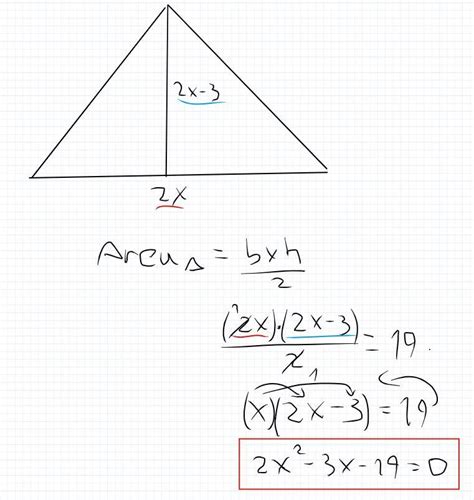 2x-3
2x
Area△ = bxh/2
(2x)·(2x-3)/2 = 19
1
1
(x)(2x-3) = 19
2x²-3x-19=0